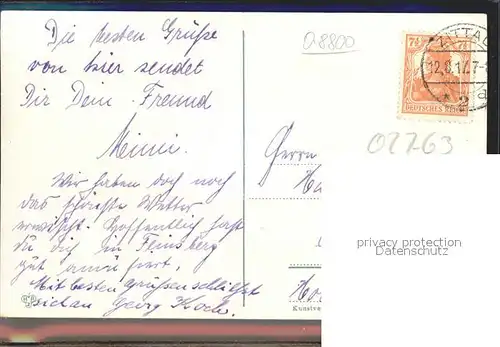 Die besten Grüße
von hier sendet
Dir Dein Freund
Mimi.
Wir haben doch noch
das schönste Wetter
erwischt. Hoffentlich hast
du dich im Flinsberg
gut amüsiert.
Mit besten Grüßen schließt
sich an Georg Koch.
08800
7½ 7½
DEUTSCHES REICH
ZITTAU
12.8.17.7-8
* 2
a
02763
Herrn
privacy protection
Datenschutz
Kunstver